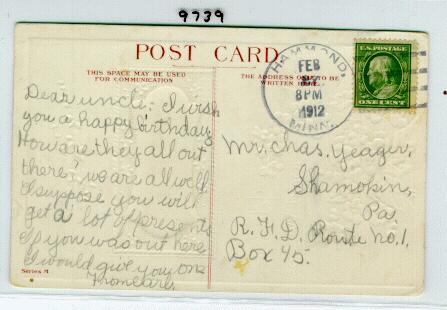 9739
POST CARD
THIS SPACE MAY BE USED
FOR COMMUNICATION
THE ADDRESS ONLY TO BE
WRITTEN HERE
HAMMOND,
FEB
8PM
1912
MINN.
U.S. POSTAGE
ONE CENT
Dear uncle: I wish
you a happy birthday
How are they all out
there? we are all well.
I suppose you will
get a lot of presents
If you was out here
I would give you one
From Carl.
Mr. Chas. Yeager,
Shamokin,
Pa.
R. F. D. Route no. 1,
Box 45.
Series M